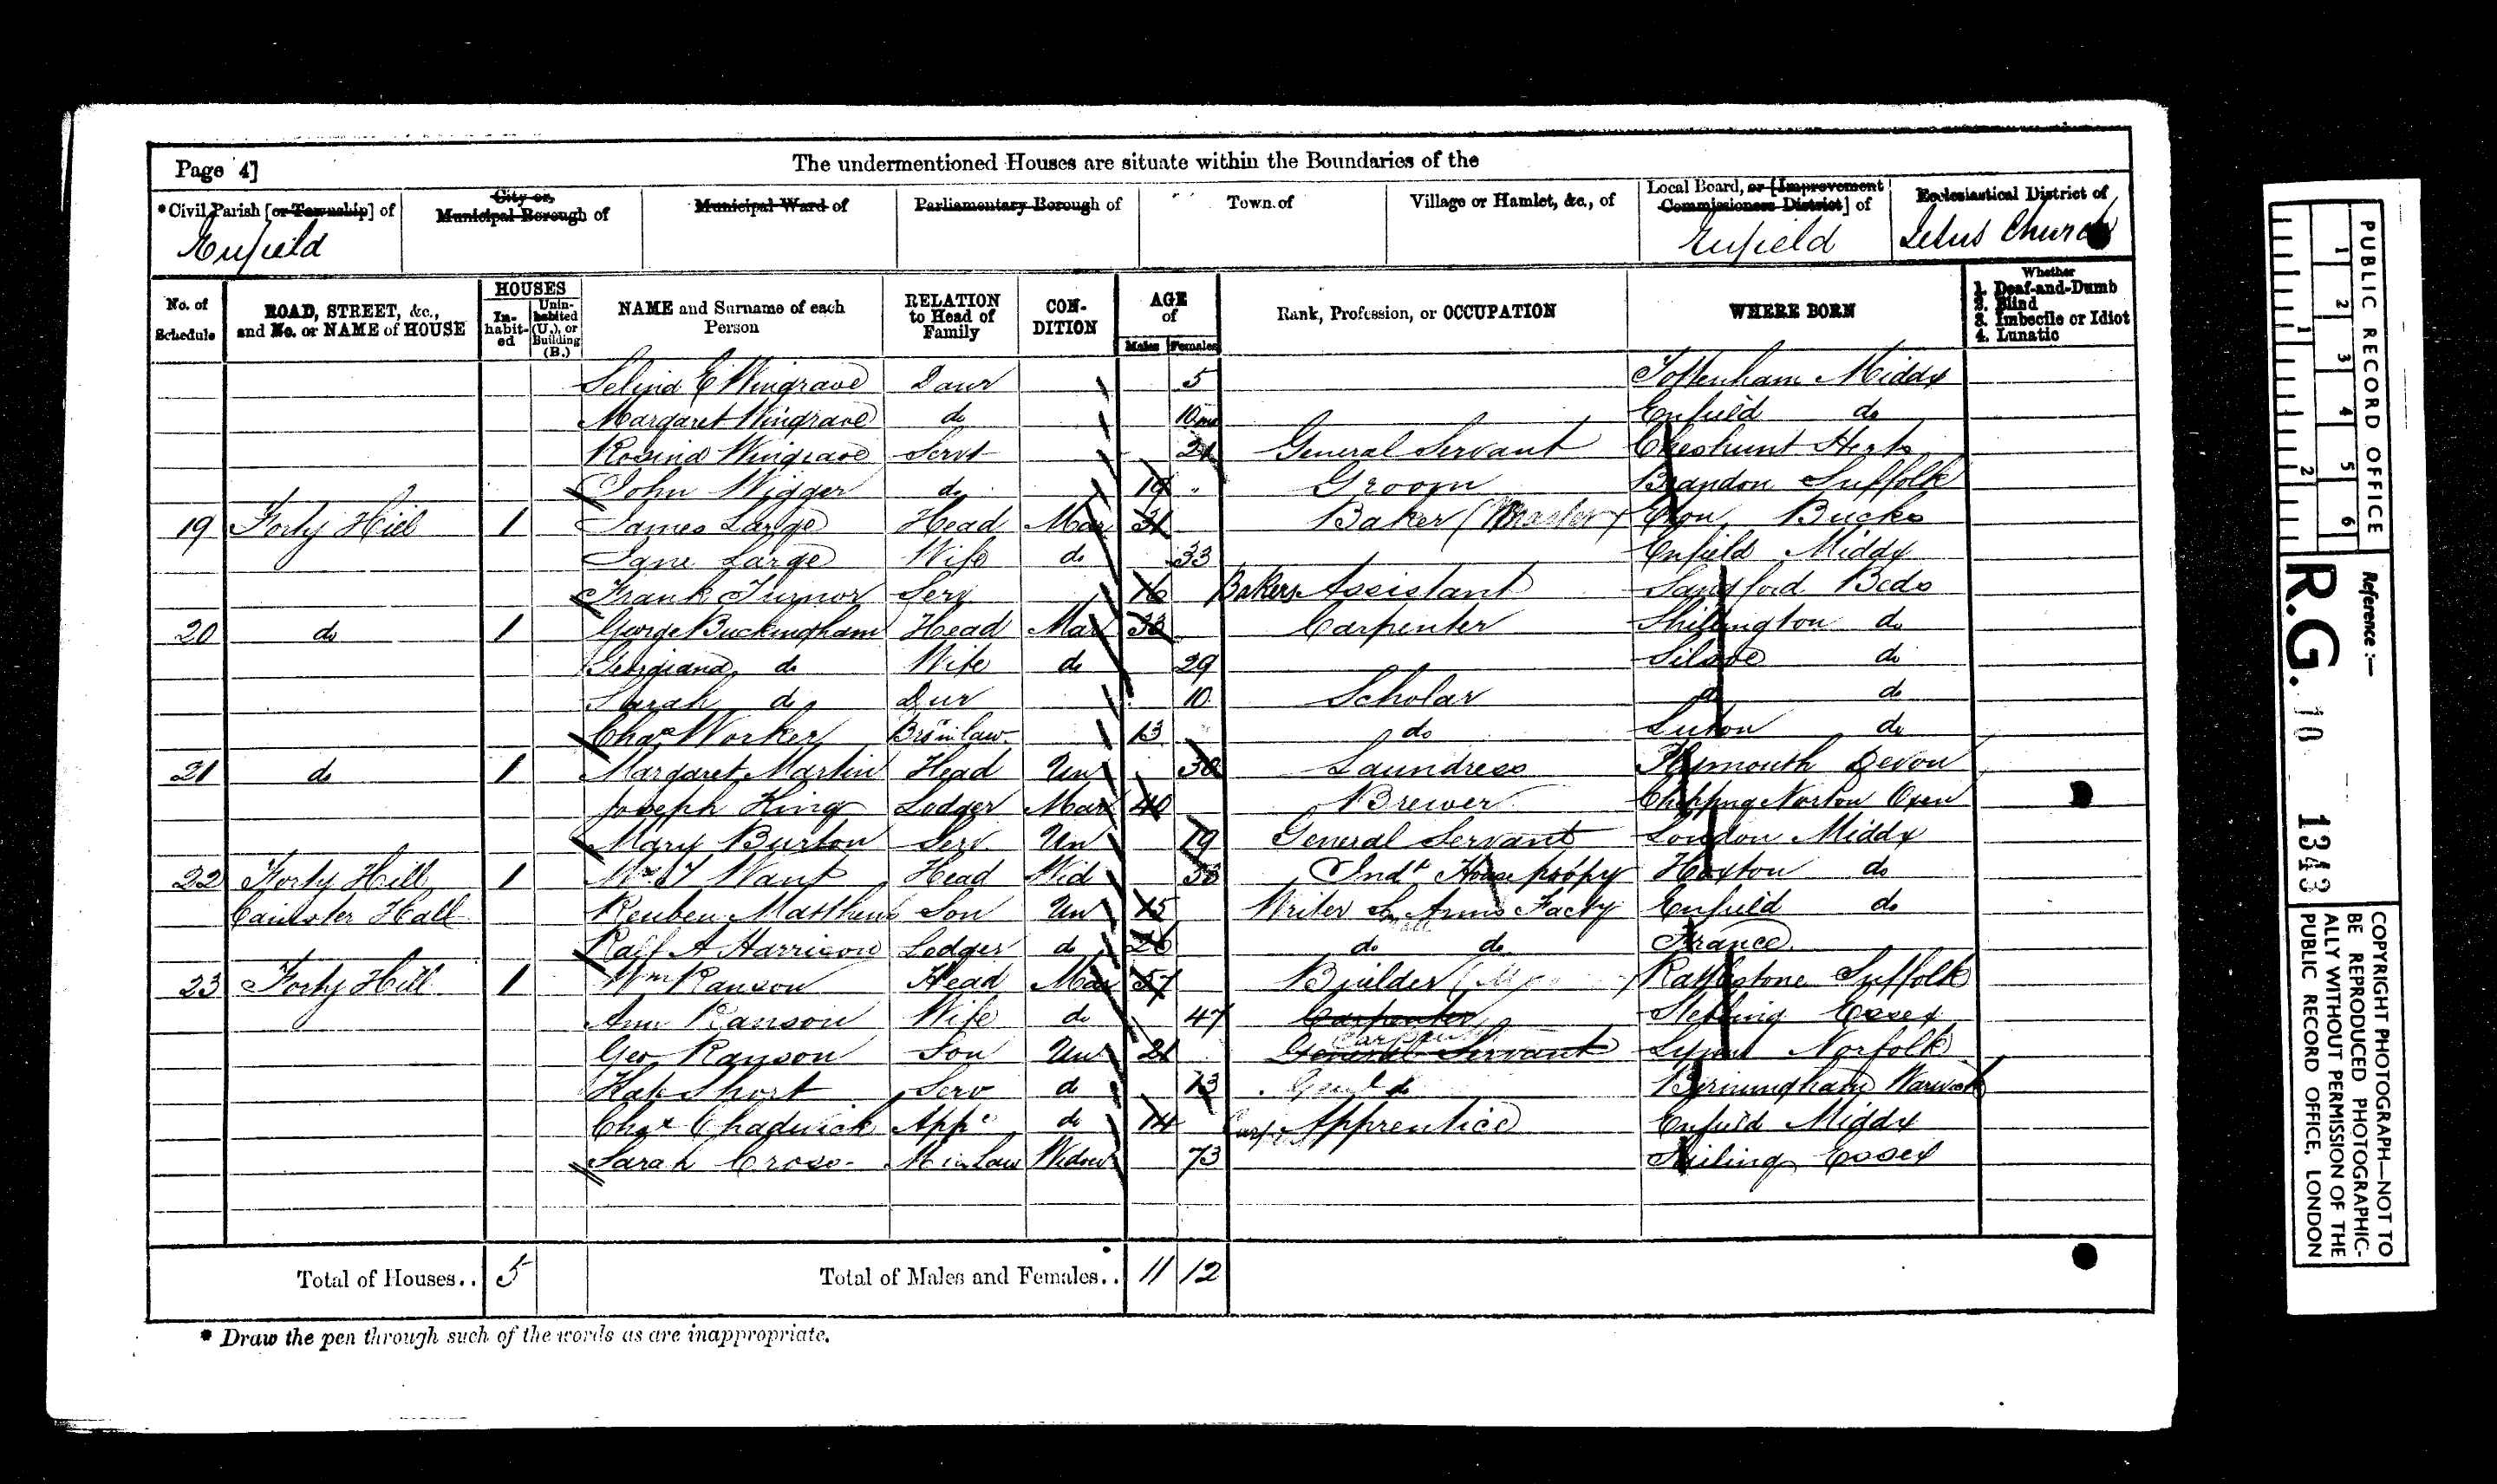 Page 4]
The undermentioned Houses are situate within the Boundaries of the
*Civil Parish [or Township] of
City or, Municipal Borough of
Municipal Ward of
Parliamentary Borough of
Town of
Village or Hamlet, &c., of
Local Board, or [Improvement Commissioners District] of
Ecclesiastical District of
Enfield
Enfield
Jesus Church
No. of Schedule
ROAD, STREET, &c., and No. or NAME of HOUSE
HOUSES
Inhabited
Uninhabited (U.), or Building (B.)
NAME and Surname of each Person
RELATION to Head of Family
CONDITION
AGE of
Males Females
Rank, Profession, or OCCUPATION
WHERE BORN
Whether
1. Deaf-and-Dumb
2. Blind
3. Imbecile or Idiot
4. Lunatic
Selina E Wingrave Daur 5 Tottenham Middx
Margaret Wingrave do 10 mo Enfield do
Rosina Wingrave Servt 21 General Servant Cheshunt Herts
John Wigger do 19 Groom Brandon Suffolk
19 Forty Hill 1 James Large Head Mar 31 Baker (Master) Eton Bucks
Jane Large Wife do 33 Enfield Middx
Frank Turnor Serv 16 Bakers Assistant Sandford Beds
20 do 1 George Buckingham Head Mar 33 Carpenter Shillington do
Georgiana do Wife do 29 Silsoe do
Sarah do Dur 10 Scholar do do
Chas Worker Br in law 13 do Luton do
21 do 1 Margaret Martin Head Un Laundress Plymouth Devon
Joseph King Lodger Mar 40 Brewer Chipping Norton Oxon
Mary Burton Serv Un 19 General Servant London Middx
22 Forty Hill 1 Want Head Wid Indt House Hoxton do
Hall Reuben Matthews Son Un 15 Writer Sm Arms Facty Enfield do
Ralf A Harrison Lodger do 26 do do France
23 Forty Hill 1 Wm Ranson Head Mar 57 Builder Suffolk
Ann Ranson Wife do 47 Carpenter Stebbing Essex
Geo Ranson Son Un 21 General Servant Lynn Norfolk
Kate Short Serv do 13 Genl do Birmingham Warwick
Chas Chadwick App do 14 Carp Apprentice Enfield Middx
Sarah Cross M in Law Widow 73 Essex
Total of Houses.. 5
Total of Males and Females.. 11 12
* Draw the pen through such of the words as are inappropriate.
PUBLIC RECORD OFFICE
1 2 3 4 5 6
1 2
Reference:—
R.G. 10 1343
COPYRIGHT PHOTOGRAPH—NOT TO
BE REPRODUCED PHOTOGRAPHIC-
ALLY WITHOUT PERMISSION OF THE
PUBLIC RECORD OFFICE, LONDON